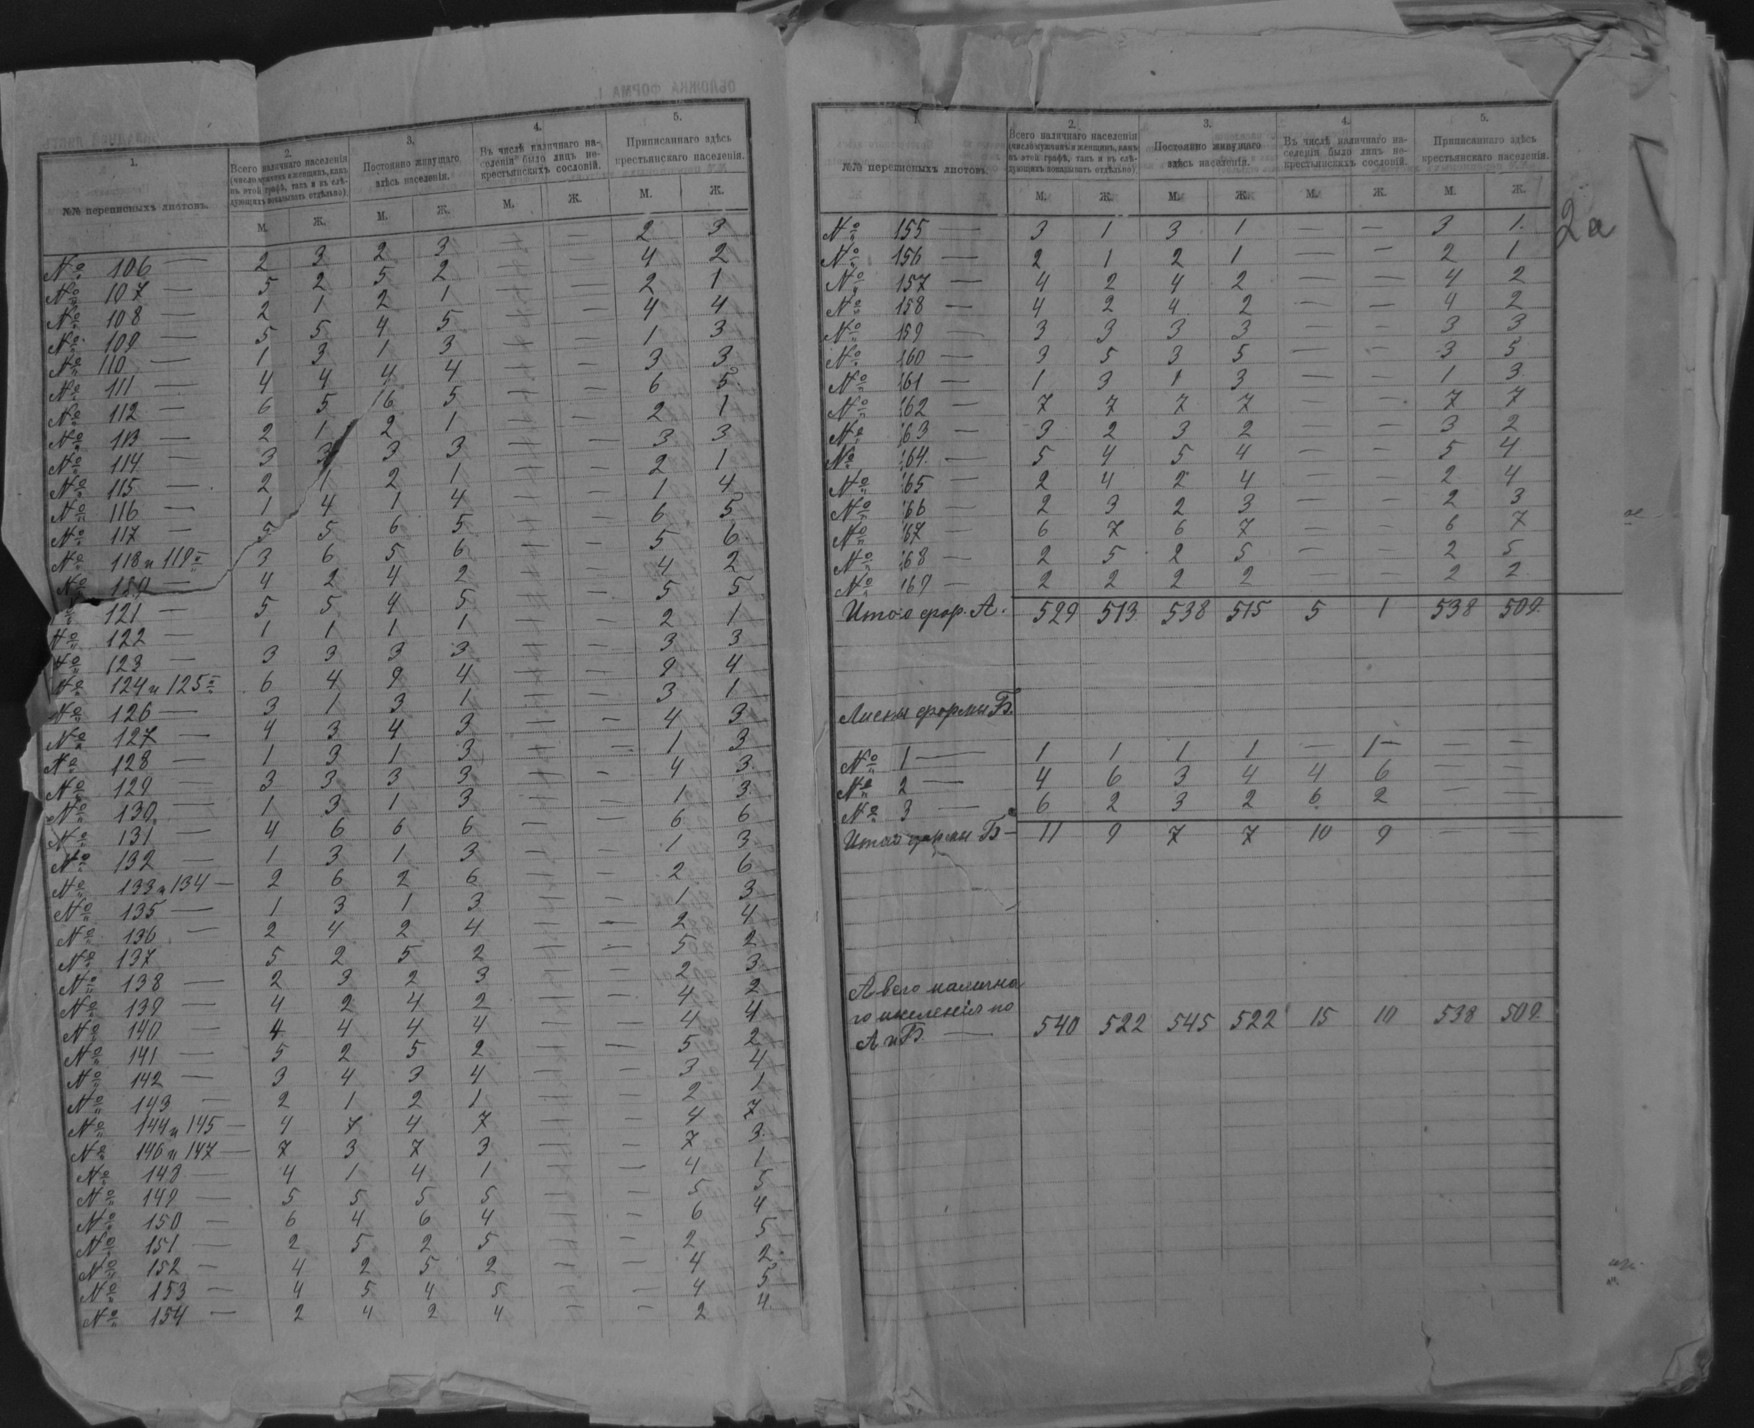 ОБЛОЖКА ФОРМА 1.
1.
2.
3.
4.
5.
№№ переписныхъ листовъ.
Всего наличнаго населенія (число мужчинъ и женщинъ, какъ въ этой графѣ, такъ и въ слѣдующихъ показывать отдѣльно).
Постоянно живущаго здѣсь населенія.
Въ числѣ наличнаго населенія было лицъ некрестьянскихъ сословій.
Приписаннаго здѣсь крестьянскаго населенія.
М. Ж. М. Ж. М. Ж. М. Ж.
№ 106 — 2 3 2 3 — — 2 3
№ 107 — 5 2 5 2 — — 4 2
№ 108 — 2 1 2 1 — — 2 1
№ 109 — 5 5 4 5 — — 4 4
№ 110 — 1 3 1 3 — — 1 3
№ 111 — 4 4 4 4 — — 3 3
№ 112 — 6 5 6 5 — — 6 5
№ 113 — 2 1 2 1 — — 2 1
№ 114 — 3 3 3 3 — — 3 3
№ 115 — 2 1 2 1 — — 2 1
№ 116 — 1 4 1 4 — — 1 4
№ 117 — 5 5 6 5 — — 6 5
№ 118 и 119 — 3 6 5 6 — — 5 6
№ 120 — 4 2 4 2 — — 4 2
121 — 5 5 4 5 — — 5 5
№ 122 — 1 1 1 1 — — 2 1
№ 123 — 3 3 3 3 — — 3 3
№ 124 и 125 — 6 4 9 4 — — 9 4
№ 126 — 3 1 3 1 — — 3 1
№ 127 — 4 3 4 3 — — 4 3
№ 128 — 1 3 1 3 — — 1 3
№ 129 — 3 3 3 3 — — 4 3
№ 130 — 1 3 1 3 — — 1 3
№ 131 — 4 6 6 6 — — 6 6
№ 132 — 1 3 1 3 — — 1 3
№ 133 и 134 — 2 6 2 6 — — 2 6
№ 135 — 1 3 1 3 — — 1 3
№ 136 — 2 4 2 4 — — 2 4
№ 137 5 2 5 2 — — 5 2
№ 138 — 2 3 2 3 — — 2 3
№ 139 — 4 2 4 2 — — 4 2
№ 140 — 4 4 4 4 — — 4 4
№ 141 — 5 2 5 2 — — 5 2
№ 142 — 3 4 3 4 — — 3 4
№ 143 — 2 1 2 1 — — 2 1
№ 144 и 145 — 4 7 4 7 — — 4 7
№ 146 и 147 — 7 3 7 3 — — 7 3
№ 148 — 4 1 4 1 — — 4 1
№ 149 — 5 5 5 5 — — 5 5
№ 150 — 6 4 6 4 — — 6 4
№ 151 — 2 5 2 5 — — 2 5
№ 152 — 4 2 5 2 — — 4 2
№ 153 — 4 5 4 5 — — 4 5
№ 154 — 2 4 2 4 — — 2 4
2.
3.
4.
5.
№№ переписныхъ листовъ.
Всего наличнаго населенія (число мужчинъ и женщинъ, какъ въ этой графѣ, такъ и въ слѣдующихъ показывать отдѣльно).
Постоянно живущаго здѣсь населенія.
Въ числѣ наличнаго населенія было лицъ некрестьянскихъ сословій.
Приписаннаго здѣсь крестьянскаго населенія.
М. Ж. М. Ж. М. Ж. М. Ж.
2а
№ 155 — 3 1 3 1 — — 3 1
№ 156 — 2 1 2 1 — — 2 1
№ 157 — 4 2 4 2 — — 4 2
№ 158 — 4 2 4 2 — — 4 2
№ 159 — 3 3 3 3 — — 3 3
№ 160 — 3 5 3 5 — — 3 5
№ 161 — 1 3 1 3 — — 1 3
№ 162 — 7 7 7 7 — — 7 7
№ 163 — 3 2 3 2 — — 3 2
№ 164 — 5 4 5 4 — — 5 4
№ 165 — 2 4 2 4 — — 2 4
№ 166 — 2 3 2 3 — — 2 3
№ 167 — 6 7 6 7 — — 6 7
№ 168 — 2 5 2 5 — — 2 5
№ 169 — 2 2 2 2 — — 2 2
Итого фор. А. 529 513 538 515 5 1 538 509
Листы формы Б.
№ 1 — 1 1 1 1 — 1 — — —
№ 2 — 4 6 3 4 4 6 — —
№ 3 — 6 2 3 2 6 2 — —
Итого формы Б — 11 9 7 7 10 9 — —
А всего налична
го населенія по
А и Б. — 540 522 545 522 15 10 538 509